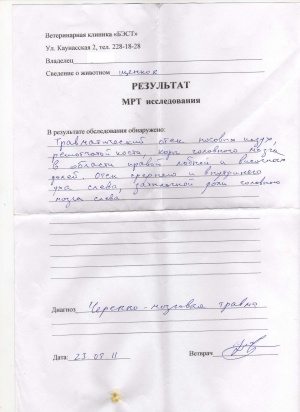 Ветеринарная клиника «БЭСТ»
Ул. Каунасская 2, тел. 228-18-28
Владелец
Сведение о животном щенков
РЕЗУЛЬТАТ
МРТ исследования
В результате обследования обнаружено:
Травматический отек носовых пазух,
решетчатой кости, коры головного мозга
в области правой лобной и височных
долей. Отек среднего и внутреннего
уха слева, затылочной доли головного
мозга слева.
Диагноз Черепно-мозговая травма
Дата: 23 09 11 Ветврач